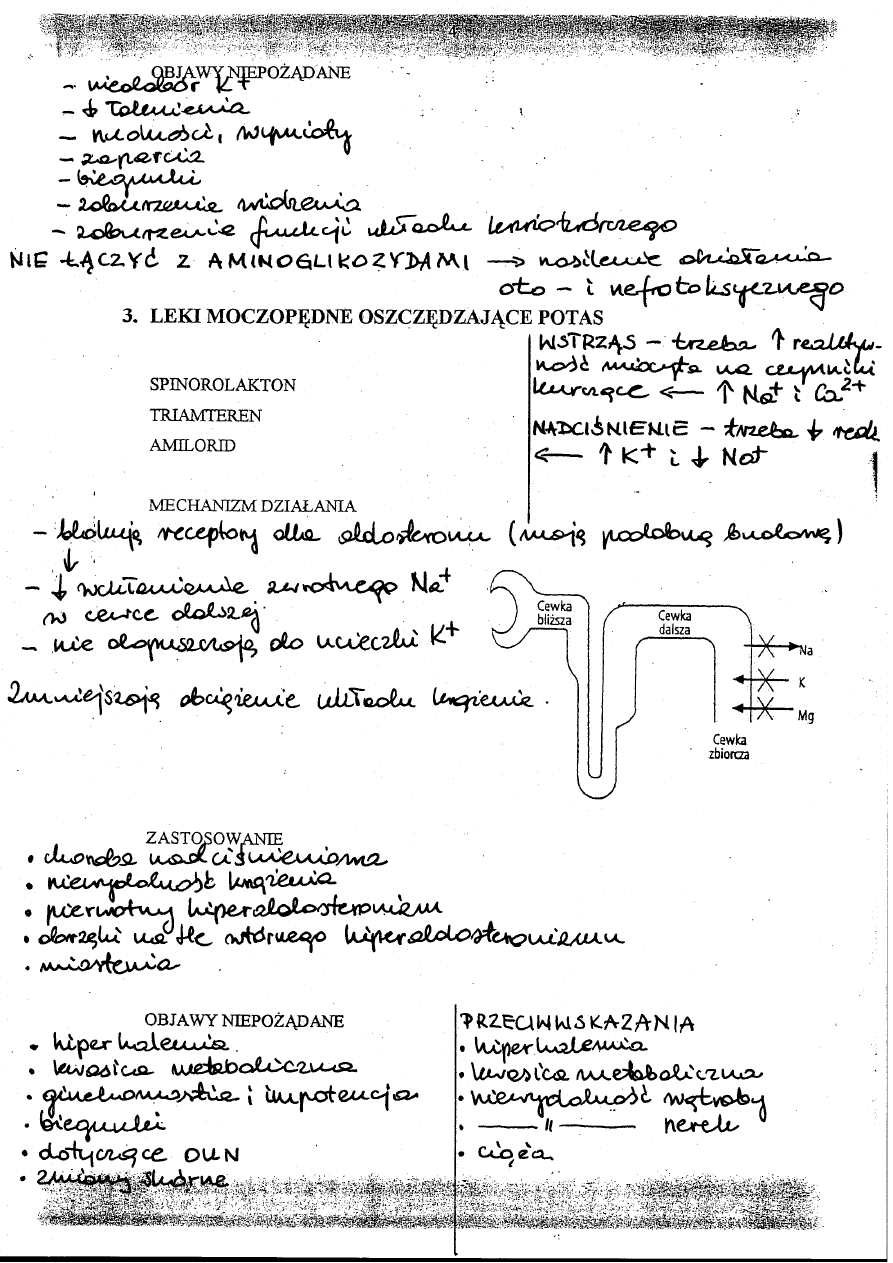 4
OBJAWY NIEPOŻĄDANE
- niedobór K+
- ↓ ciśnienia
- nudności, wymioty
- zaparcia
- biegunki
- zaburzenie widzenia
- zaburzenie funkcji układu krwiotwórczego
NIE ŁĄCZYĆ Z AMINOGLIKOZYDAMI → nasilenie działania
oto - i nefrotoksycznego
3. LEKI MOCZOPĘDNE OSZCZĘDZAJĄCE POTAS
WSTRZĄS - trzeba ↑ reaktyw-
ność miocyta na czynniki
kurczące ← ↑ Na+ i Ca2+
NADCIŚNIENIE - trzeba ↓ reak.
← ↑ K+ i ↓ Na+
SPINOROLAKTON
TRIAMTEREN
AMILORID
MECHANIZM DZIAŁANIA
- blokują receptory dla aldosteronu (mają podobną budowę)
↓
- ↓ wchłanianie zwrotnego Na+
w cewce dalszej
- nie dopuszczają do ucieczki K+
Zmniejszają obciążenie układu krążenie.
Cewka
bliższa
Cewka
dalsza
Na
K
Mg
Cewka
zbiorcza
ZASTOSOWANIE
• choroba nadciśnieniowa
• niewydolność krążenia
• pierwotny hiperaldosteronizm
• obrzęki na tle wtórnego hiperaldosteronizmu
• miastenia
OBJAWY NIEPOŻĄDANE
• hiperkalemia
• kwasica metaboliczna
• ginekomastia i impotencja
• biegunki
• dotyczące OUN
• zmiany skórne
PRZECIWWSKAZANIA
• hiperkalemia
• kwasica metaboliczna
• niewydolność wątroby
• —— || —— nerek
• ciąża